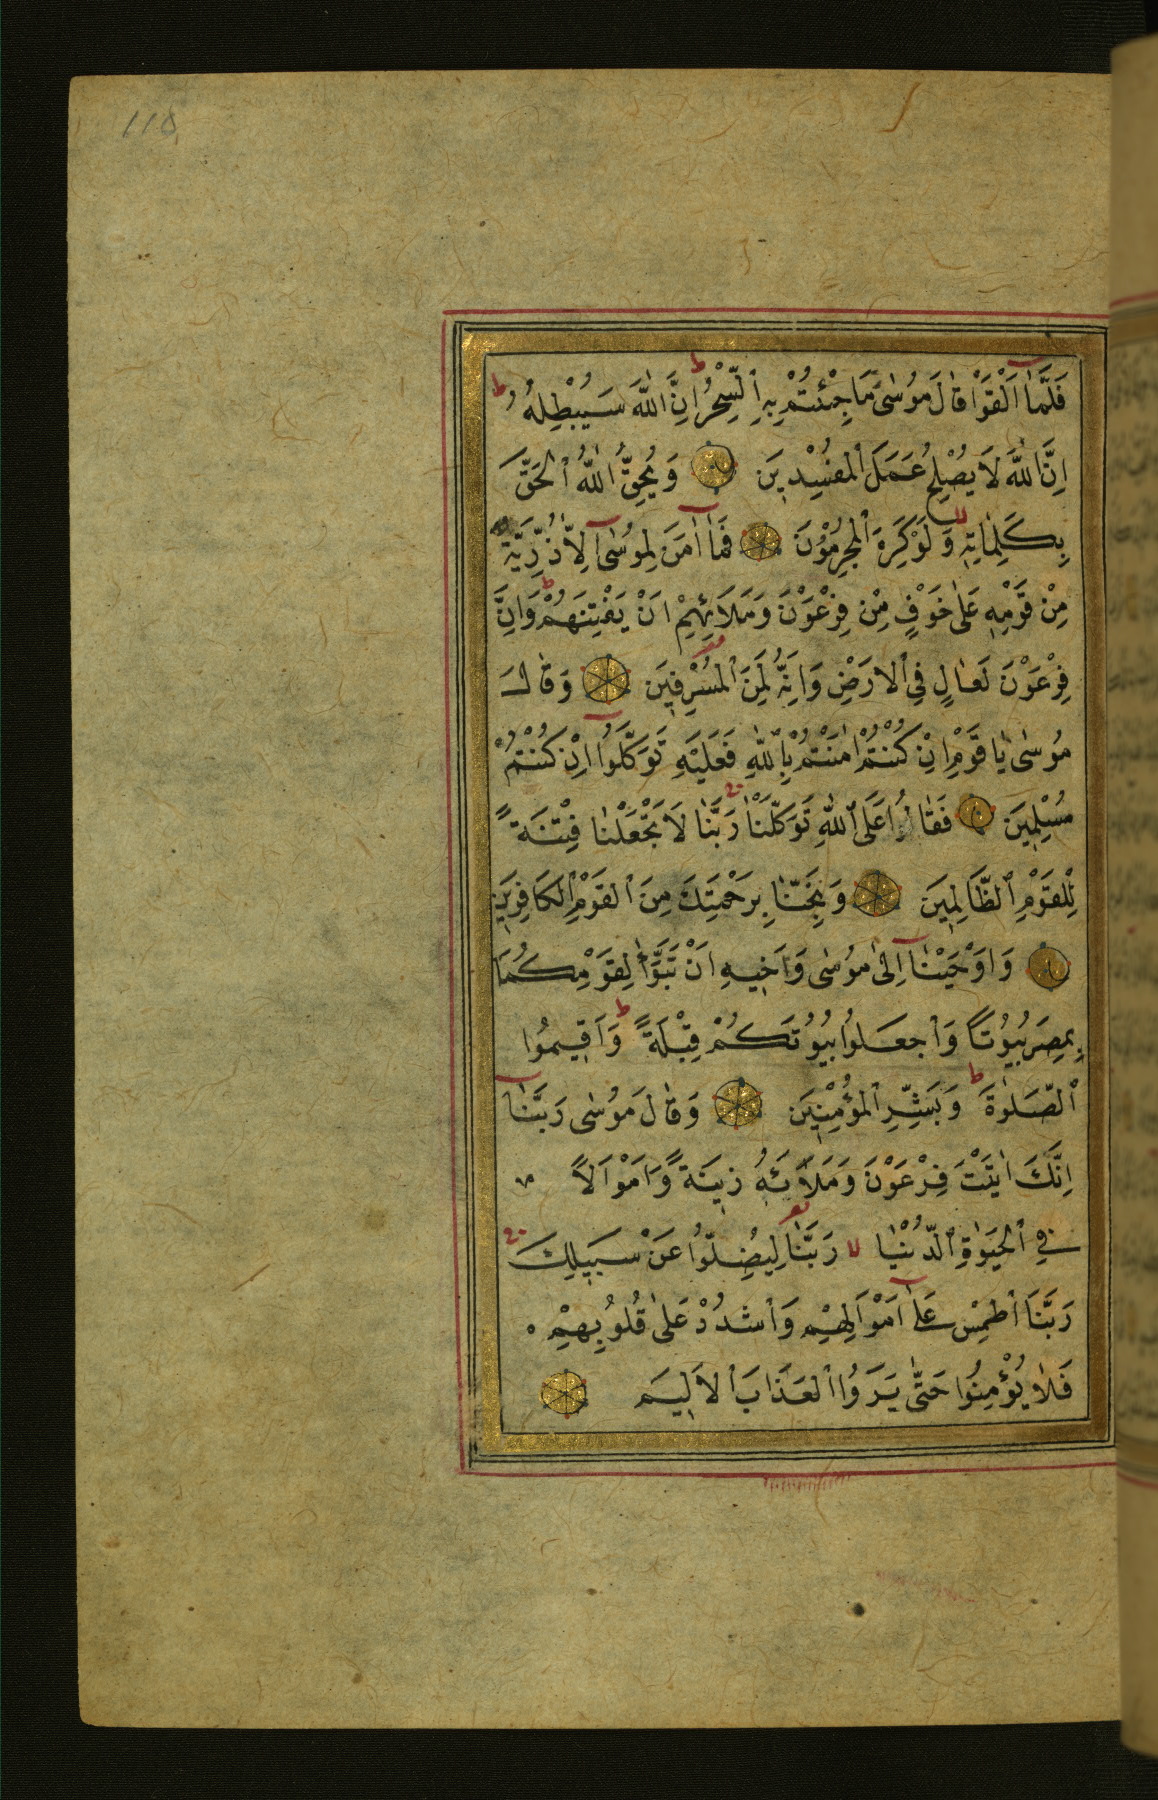 118
فَلَمَّا اَلْقَوْا قَالَ مُوسٰى مَاجِئْتُمْ بِهِ ٱلسِّحْرُ اِنَّ اللّٰهَ سَيُبْطِلُهُ
اِنَّ اللّٰهَ لَا يُصْلِحُ عَمَلَ ٱلْمُفْسِدِينَ وَيُحِقُّ اللّٰهُ ٱلْحَقَّ
بِكَلِمَاتِهٖ وَلَوْ كَرِهَ ٱلْمُجْرِمُونَ فَمَا اٰمَنَ لِمُوسٰى اِلَّا ذُرِّيَّةٌ
مِنْ قَوْمِهٖ عَلٰى خَوْفٍ مِنْ فِرْعَوْنَ وَمَلَائِهِمْ اَنْ يَفْتِنَهُمْ وَاِنَّ
فِرْعَوْنَ لَعَالٍ فِي ٱلْاَرْضِ وَاِنَّهُ لَمِنَ ٱلْمُسْرِفِينَ وَقَالَ
مُوسٰى يَا قَوْمِ اِنْ كُنْتُمْ اٰمَنْتُمْ بِاللّٰهِ فَعَلَيْهِ تَوَكَّلُوا اِنْ كُنْتُمْ
مُسْلِمِينَ فَقَالُوا عَلَى ٱللّٰهِ تَوَكَّلْنَا رَبَّنَا لَا تَجْعَلْنَا فِتْنَةً
لِلْقَوْمِ ٱلظَّالِمِينَ وَنَجِّنَا بِرَحْمَتِكَ مِنَ ٱلْقَوْمِ ٱلْكَافِرِينَ
وَاَوْحَيْنَا اِلٰى مُوسٰى وَاَخِيهِ اَنْ تَبَوَّأٰ لِقَوْمِكُمَا
بِمِصْرَ بُيُوتًا وَٱجْعَلُوا بُيُوتَكُمْ قِبْلَةً وَاَقِيمُوا
ٱلصَّلٰوةَ وَبَشِّرِ ٱلْمُؤْمِنِينَ وَقَالَ مُوسٰى رَبَّنَا
اِنَّكَ اٰتَيْتَ فِرْعَوْنَ وَمَلَاَئَهُ زِينَةً وَاَمْوَالًا
فِي ٱلْحَيٰوةِ ٱلدُّنْيَا رَبَّنَا لِيُضِلُّوا عَنْ سَبِيلِكَ
رَبَّنَا ٱطْمِسْ عَلٰى اَمْوَالِهِمْ وَٱشْدُدْ عَلٰى قُلُوبِهِمْ
فَلَا يُؤْمِنُوا حَتّٰى يَرَوُا ٱلْعَذَابَ ٱلْاَلِيمَ